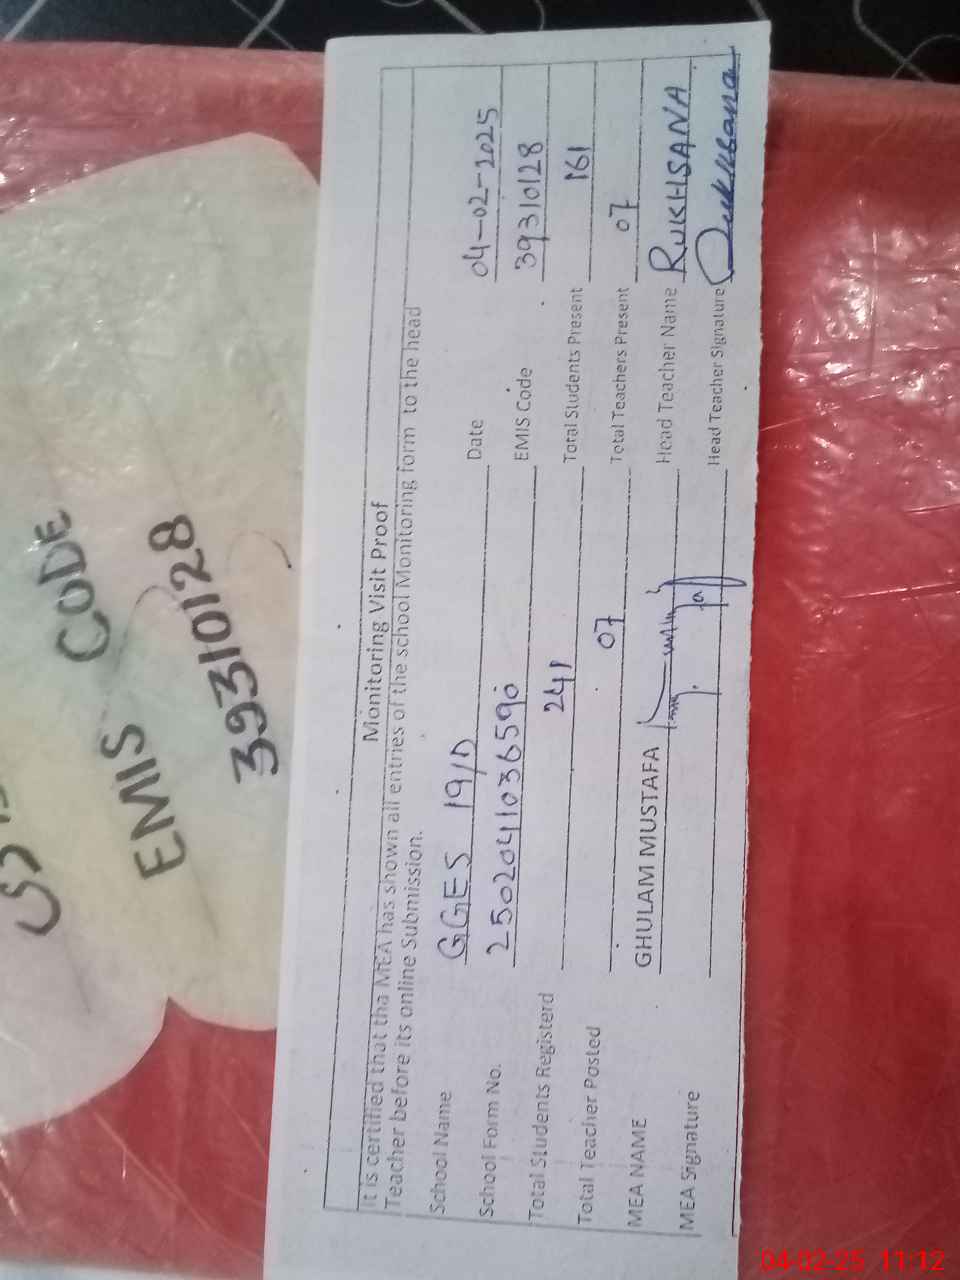 Monitoring Visit Proof
It is certified that tha MEA has shown all entries of the school Monitoring form to the head
Teacher before its online Submission.
School Name GGES 19/D Date 04-02-2025
School Form No. 25020411036590 EMIS Code 39310128
Total Students Registerd 241 Total Students Present 161
Total Teacher Posted 07 Total Teachers Present 07
MEA NAME GHULAM MUSTAFA Head Teacher Name RUKHSANA
MEA Signature Head Teacher Signature Rukhsana
EMIS CODE
39310128
04-02-25 11:12